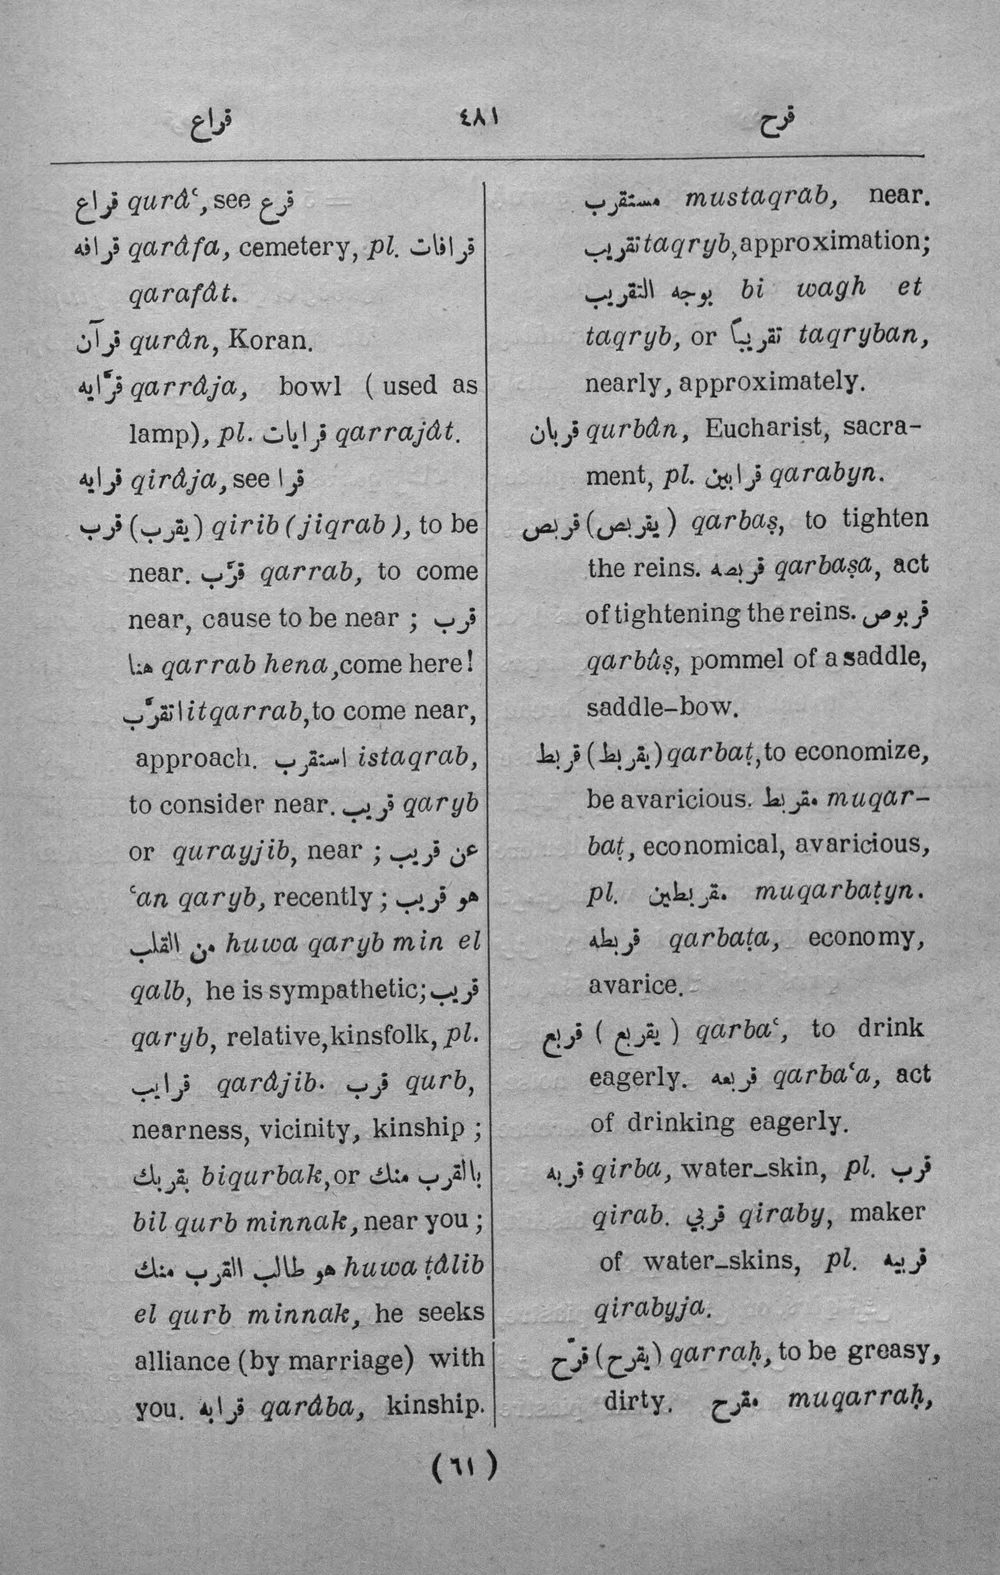 قراع ٤٨١ قرح
قراع qurâʿ, see قرع
قرافه qarâfa, cemetery, pl. قرافات
qarafât.
قرآن qurân, Koran.
قرّايه qarrâja, bowl (used as
lamp), pl. قرايات qarrajât.
قرايه qirâja, see قرا
قرب (يقرب) qirib (jiqrab), to be
near. قرّب qarrab, to come
near, cause to be near ; قرب
هنا qarrab hena, come here!
اتقرّب itqarrab, to come near,
approach. استقرب istaqrab,
to consider near. قريب qaryb
or qurayjib, near ; عن قريب
ʿan qaryb, recently ; هو قريب
من القلب huwa qaryb min el
qalb, he is sympathetic; قريب
qaryb, relative, kinsfolk, pl.
قرايب qarâjib. قرب qurb,
nearness, vicinity, kinship ;
بقربك biqurbak, or بالقرب منك
bil qurb minnak, near you ;
هو طالب القرب منك huwa ṭâlib
el qurb minnak, he seeks
alliance (by marriage) with
you. قرابه qarâba, kinship.
مستقرب mustaqrab, near.
تقريب taqryb, approximation;
بوجه التقريب bi wagh et
taqryb, or تقريباً taqryban,
nearly, approximately.
قربان qurbân, Eucharist, sacra-
ment, pl. قرابين qarabyn.
قربص (يقربص) qarbaṣ, to tighten
the reins. قربصه qarbaṣa, act
of tightening the reins. قربوص
qarbûṣ, pommel of a saddle,
saddle-bow.
قربط (يقربط) qarbaṭ, to economize,
be avaricious. مقربط muqar-
baṭ, economical, avaricious,
pl. مقربطين muqarbaṭyn.
قربطه qarbaṭa, economy,
avarice.
قربع (يقربع) qarbaʿ, to drink
eagerly. قربعه qarbaʿa, act
of drinking eagerly.
قربه qirba, water-skin, pl. قرب
qirab. قربي qiraby, maker
of water-skins, pl. قربيه
qirabyja.
قرّح (يقرح) qarraḥ, to be greasy,
dirty. مقرح muqarraḥ,
(٦١)